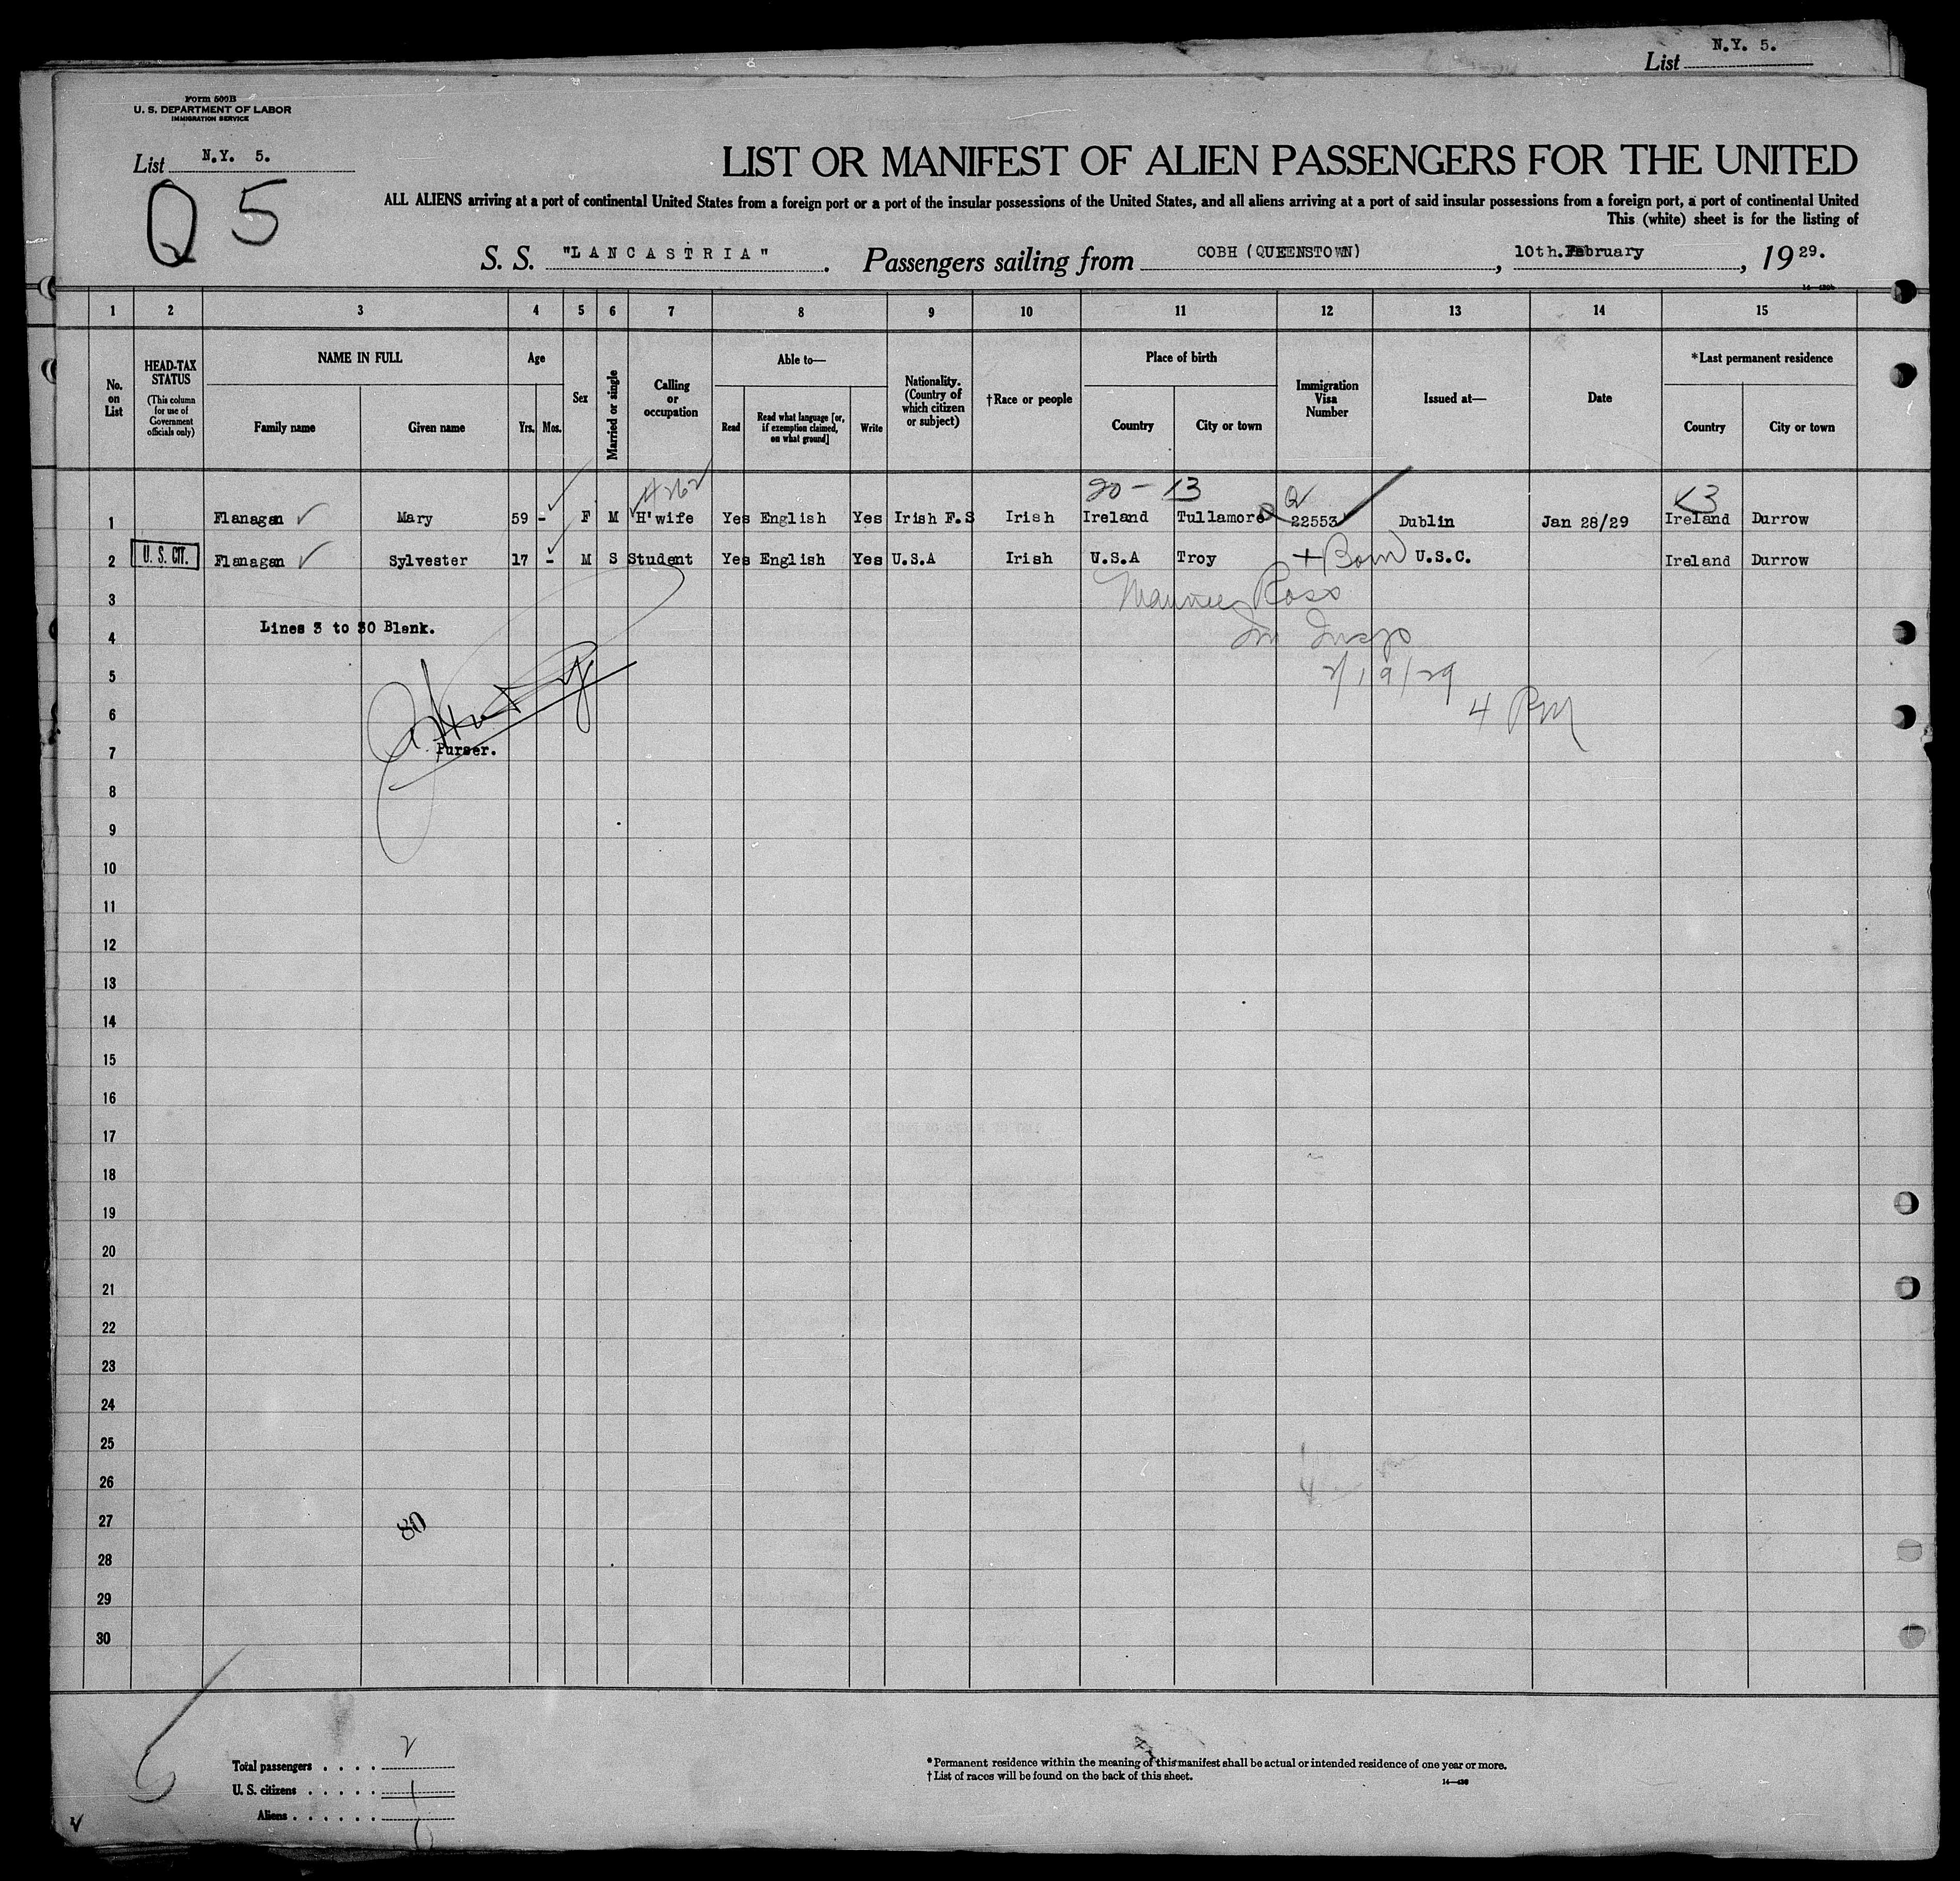 List N.Y. 5.
Form 500B
U. S. DEPARTMENT OF LABOR
IMMIGRATION SERVICE
List N.Y. 5.
Q 5
LIST OR MANIFEST OF ALIEN PASSENGERS FOR THE UNITED
ALL ALIENS arriving at a port of continental United States from a foreign port or a port of the insular possessions of the United States, and all aliens arriving at a port of said insular possessions from a foreign port, a port of continental United
This (white) sheet is for the listing of
S. S. "LANCASTRIA". Passengers sailing from COBH (QUEENSTOWN), 10th. February, 1929.
1 2 3 4 5 6 7 8 9 10 11 12 13 14 15
No. on List
HEAD-TAX STATUS
(This column for use of Government officials only)
NAME IN FULL
Family name Given name
Age
Yrs. Mos.
Sex
Married or single
Calling or occupation
Able to—
Read Read what language [or, if exemption claimed, on what ground] Write
Nationality. (Country of which citizen or subject)
†Race or people
Place of birth
Country City or town
Immigration Visa Number
Issued at—
Date
*Last permanent residence
Country City or town
20 - 13
1 Flanagan Mary 59 - F M H'wife Yes English Yes Irish F.S Irish Ireland Tullamore 22553 Dublin Jan 28/29 Ireland Durrow
2 U. S. CIT. Flanagan Sylvester 17 - M S Student Yes English Yes U.S.A Irish U.S.A Troy + Born U.S.C. Ireland Durrow
3 Ross
Lines 3 to 30 Blank.
4
5 2/19/29
6 4 PM
7 Purser.
8
9
10
11
12
13
14
15
16
17
18
19
20
21
22
23
24
25
26
27 80
28
29
30
Total passengers . . . . 2
U. S. citizens . . . . . 1
Aliens . . . . . .
*Permanent residence within the meaning of this manifest shall be actual or intended residence of one year or more.
†List of races will be found on the back of this sheet.